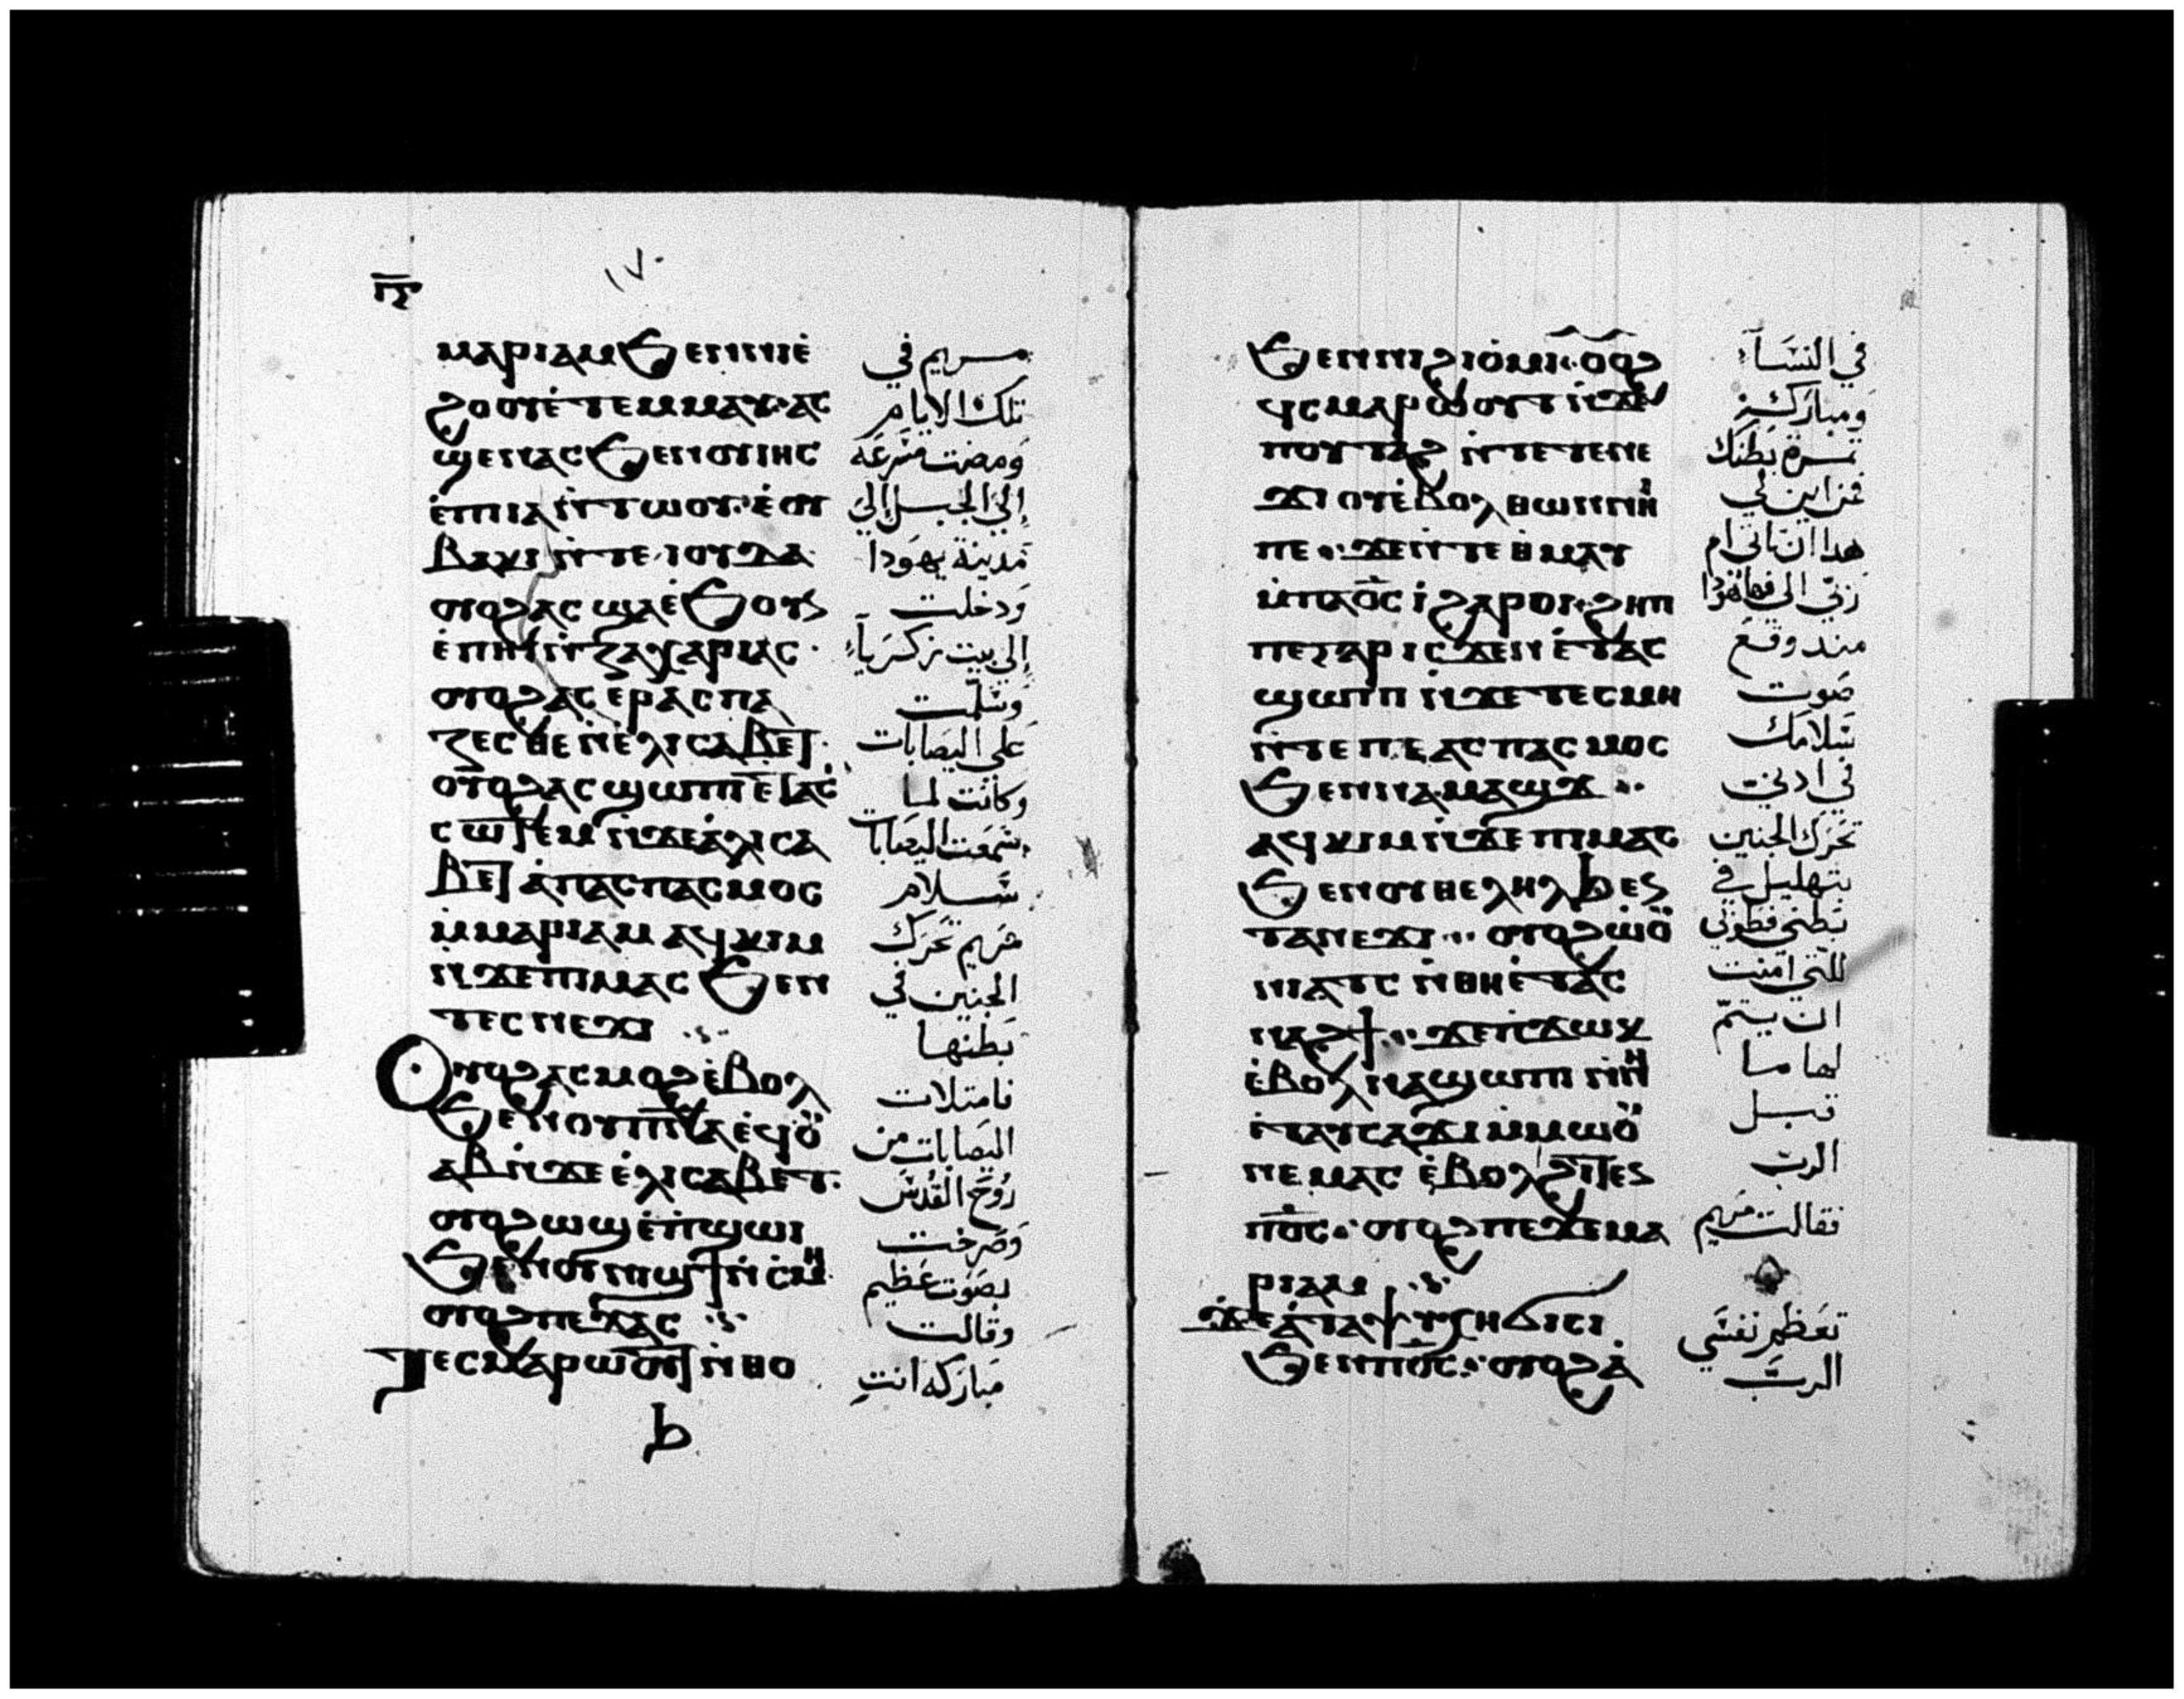 ⲡ̅ⲅ̅
ⲙⲁⲣⲓⲁⲙ ϧⲉⲛⲛⲓⲉ̇
ϩⲟⲟⲩⲉ̇ⲧⲉⲙⲙⲁⲩ· ⲁⲥ
ϣⲉⲛⲁⲥ ϧⲉⲛⲟⲩⲓⲏⲥ
ⲉ̇ⲡⲓⲁⲛ̇ⲧⲱⲟⲩ· ⲉ̇ⲟⲩ
ⲃⲁⲕⲓ ⲛ̇ⲧⲉ ⲓⲟⲩⲇⲁ·
ⲟⲩⲟϩ ⲁⲥϣⲁⲉ̇ϧⲟⲩⲛ
ⲉ̇ⲡⲏⲓ ⲛ̇ⲍⲁⲭⲁⲣⲓⲁⲥ·
ⲟⲩⲟϩ ⲁⲥⲉⲣⲁⲥⲡⲁ
ⲍⲉⲥⲑⲉ ⲛ̇ⲉⲗⲓⲥⲁⲃⲉⲧ·
ⲟⲩⲟϩ ⲁⲥϣⲱⲡⲓ ⲉ̇ⲧⲁⲥ
ⲥⲱⲧⲉⲙ ⲛ̇ϫⲉⲉ̇ⲗⲓⲥⲁ
ⲃⲉⲧ ⲁ̇ⲡⲁⲥⲡⲁⲥⲙⲟⲥ
ⲙ̇ⲙⲁⲣⲓⲁⲙ ⲁϥⲕⲓⲙ
ⲛ̇ϫⲉⲡⲓⲙⲁⲥ ϧⲉⲛ
ⲧⲉⲥⲛⲉϫⲓ
ⲟⲩⲟϩ ⲁⲥⲙⲟϩ ⲉ̇ⲃⲟⲗ
ϧⲉⲛⲟⲩⲡ̅ⲛ̅ⲁ̅ ⲉϥⲟ̇ⲩ
ⲁⲃ ⲛ̇ϫⲉ ⲉ̇ⲗⲓⲥⲁⲃⲉⲧ·
ⲟⲩⲟϩ ⲱϣ ⲉ̇ⲡ̇ϣⲱⲓ
ϧⲉⲛⲟⲩⲛⲓϣϯ ⲛ̇ⲥ̇ⲙⲏ
ⲟⲩⲟϩ ⲡⲉϫⲁⲥ
ⲧⲉⲥⲙⲁⲣⲱⲟⲩⲧ ⲛ̇ⲑⲟ
ⲃ
١٧٠
مريم في
تلك الايام
ومضت مسرعه
إلى الجبل إلى
مدينة يهودا
ودخلت
إلي بيت زكرياء
وسلمت
على اليصابات
وكانت لما
سمعت اليصابات
سلام
مريم تحرك
الجنين في
بطنها
فامتلات
اليصابات من
روح القدس
وصرخت
بصوت عظيم
وقالت
مباركه انتِ
ϧⲉⲛⲛⲓϩⲓⲟ̇ⲙⲓ· ⲟⲩⲟϩ
ϥⲥⲙⲁⲣⲱⲟⲩⲧ ⲛ̇ϫⲉ
ⲡⲟⲩⲧⲁϩ ⲛ̇ⲧⲉⲧⲉⲛⲉ
ϫⲓ ⲟⲩⲉ̇ⲃⲟⲗ ⲑⲱⲛ ⲡⲏ
ⲡⲉ· ϫⲉⲛ̇ⲧⲉ ⲑ̇ⲙⲁⲩ
ⲙ̇ⲡⲁⲟ̅ⲥ̅ ⲓ̇ϩⲁⲣⲟⲓ· ϩⲏⲡ
ⲡⲉⲅⲁⲣ ⲓⲥϫⲉⲛ ⲉ̇ⲧⲁⲥ
ϣⲱⲡⲓ ⲛ̇ϫⲉ ⲧⲉⲥⲙⲏ
ⲛ̇ⲧⲉ ⲡⲉⲁⲥⲡⲁⲥⲙⲟⲥ
ϧⲉⲛⲛⲁⲙⲁϣϫ
ⲁϥⲕⲓⲙ ⲛ̇ϫⲉⲡⲓⲙⲁⲥ
ϧⲉⲛⲟⲩⲑⲉⲗⲏⲗ ϧⲉⲛ
ⲧⲁⲛⲉϫⲓ· ⲟⲩⲟϩ ⲱ̇ⲟⲩ
ⲛⲓⲁⲧⲥ ⲛ̇ⲑⲏ ⲉ̇ⲧⲁⲥ
ⲛⲁϩϯ· ϫⲉⲡϫⲱⲕ
ⲉ̇ⲃⲟⲗ ⲛⲁϣⲱⲡⲓ ⲛ̇ⲛⲏ
ⲉ̇ⲧⲁⲩⲥⲁϫⲓ ⲙ̇ⲙⲱⲟⲩ
ⲛⲉⲙⲁⲥ ⲉ̇ⲃⲟⲗ ϩⲓⲧⲉⲛ
ⲡⲟ̅ⲥ̅· ⲟⲩⲟϩ ⲡⲉϫⲉ ⲙⲁ
ⲣⲓⲁⲙ
ϫⲉ ⲁ̇ⲧⲁⲯⲩⲭⲏ ϭⲓⲥⲓ
ϧⲉⲛⲡⲟ̅ⲥ̅· ⲟⲩⲟϩ ⲁ̇
في النساء
ومباركـ
ثمرة بطنك
فمن اين لي
هدا ان تاتي ام
ربي الي
مند وقع
صوت
سلامك
في ادني
تحرك الجنين
بتهليل في
بطني فطوبي
للتي امنت
ان يتم
لها ما
قيل
الرب
فقالت مريم
تعظم نفسي
الرب